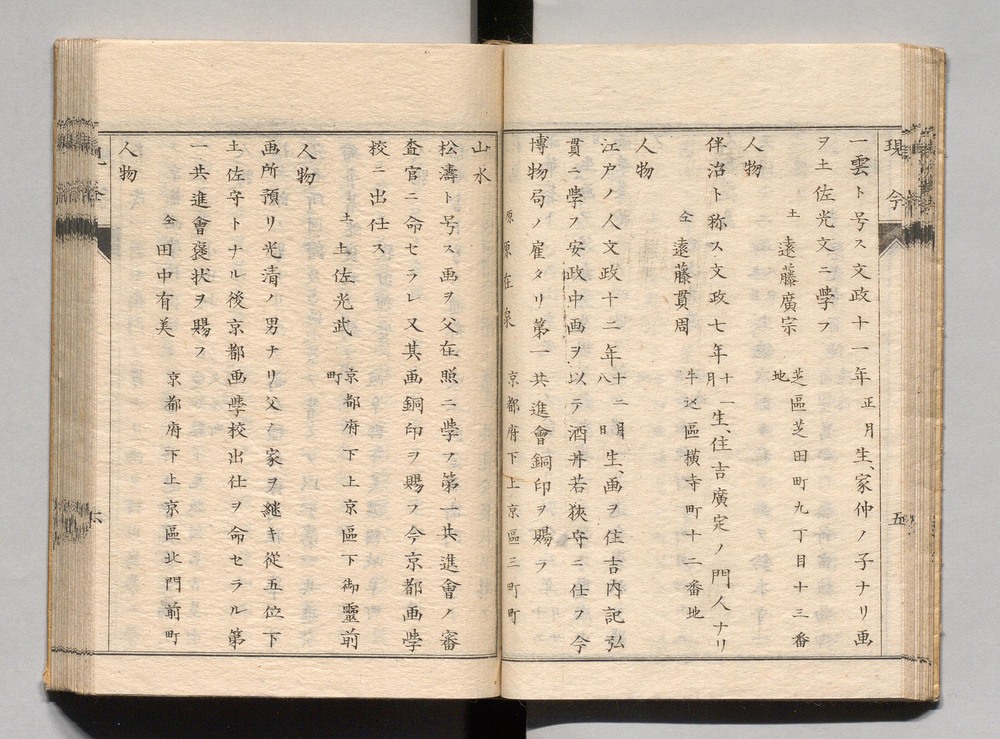 現今
一雲ト号ス文政十一年正月生、家仲ノ子ナリ画
ヲ土佐光文ニ学フ
土 遠藤廣宗 芝區芝田町九丁目十三番
地
人物
伴治ト称ス文政七年十一
月生、住吉廣定ノ門人ナリ
仝 遠藤貫周 牛込區横寺町十二番地
人物
江戸ノ人文政十二年十二月
八日生、画ヲ住吉内記弘
貫ニ學フ安政中画ヲ以テ酒井若狭守ニ仕フ今
博物局ノ雇タリ第一共進會銅印ヲ賜フ
原 原在泉 京都府下上京區三町町
五
山水
松濤ト号ス画ヲ父在照ニ學フ第一共進會ノ審
査官ニ命セラレ又其画銅印ヲ賜フ今京都画學
校ニ出仕ス
土 土佐光武 京都府下上京區下御靈前
町
人物
画所預リ光清ノ男ナリ父ノ家ヲ継キ従五位下
土佐守トナル後京都画學校出仕ヲ命セラル第
一共進會褒状ヲ賜フ
仝 田中有美 京都府下上京區北門前町
人物
六